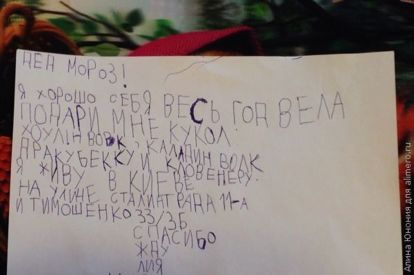 ДЕД МОРОЗ!
Я ХОРОШО СЕБЯ ВЕСЬ ГОД ВЕЛА
ПОДАРИ МНЕ КУКОЛ:
ХОУЛИН ВОЛК, КАЛАДИН ВОЛК
ДРАКУБЕККУ И КЛОВЕНЕРУ.
Я ЖИВУ В КИЕВЕ
НА УЛИЦЕ СТАЛИНГРАДА 11-А
И ТИМОШЕНКО 33/3Б
СПАСИБО
ЖДУ
ЛИЯ
Алина Юнония для alimero.ru